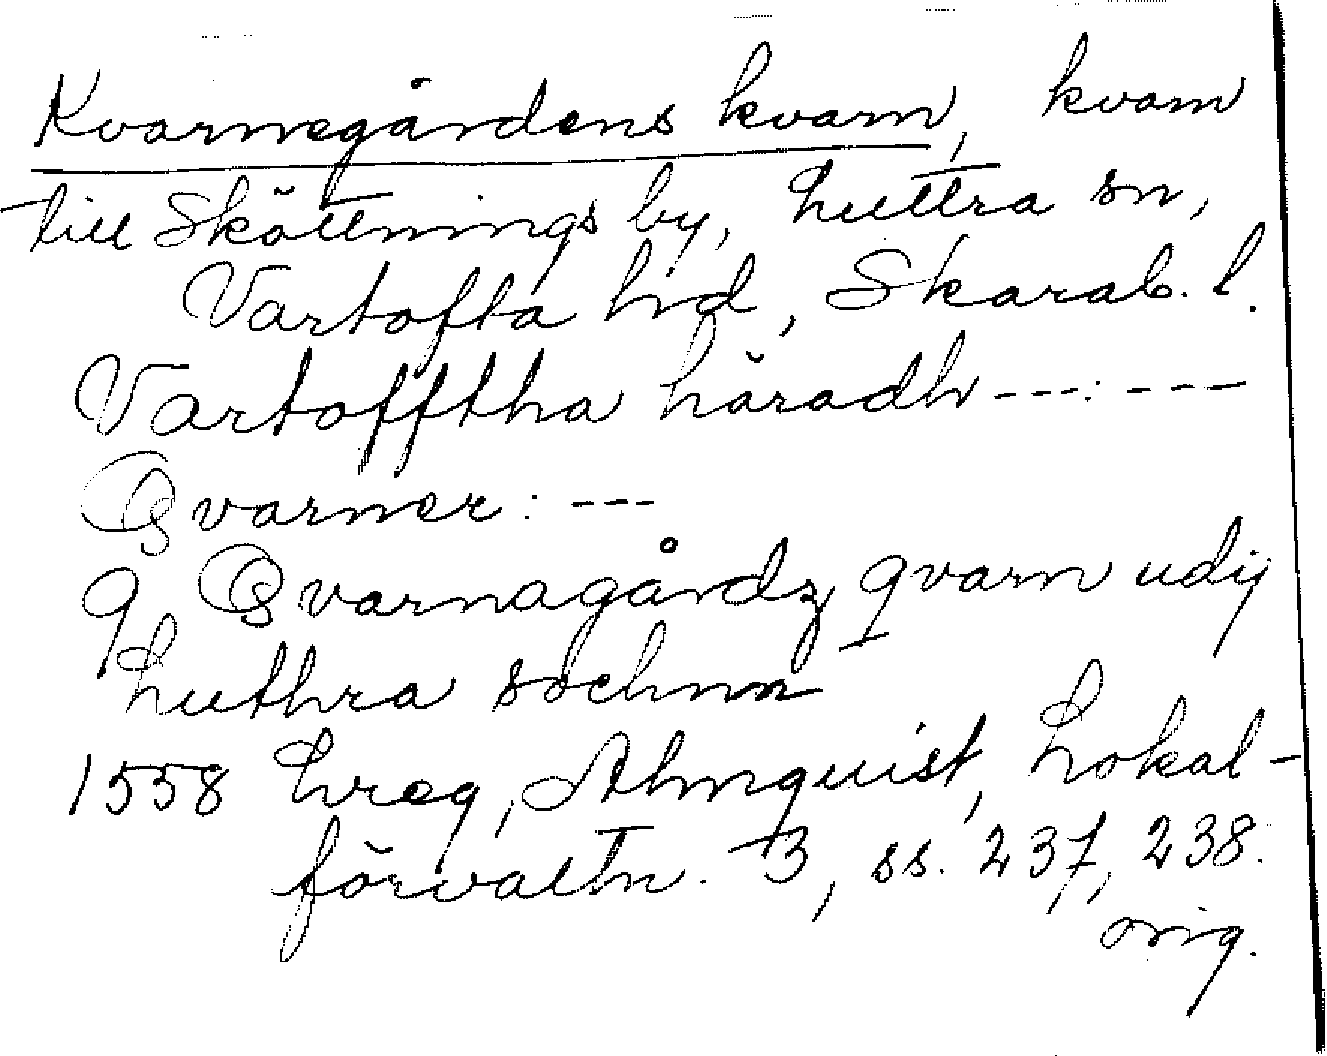 Kvarnegårdens kvarn, kvarn
till Sköttnings by, Luttra sn,
Vartofta hd, Skarab. l.
Vartofftha häradh ---:---
Qvarner: ---
9 Qvarnagårdz qvarn udij
Luthra sochnn
1558 hreg, Almquist, Lokal-
förvaltn. 3, ss. 237, 238.
orig.